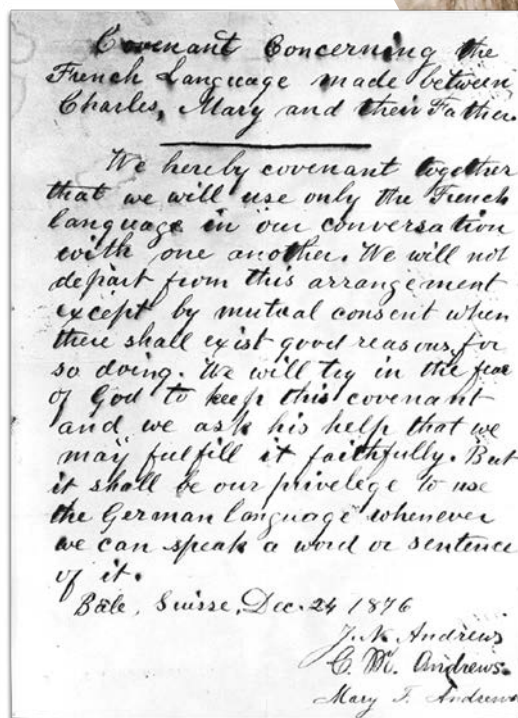 Covenant Concerning the
French Language made between
Charles, Mary and their Father.
We hereby covenant together
that we will use only the French
language in our conversation
with one another. We will not
depart from this arrangement
except by mutual consent when
there shall exist good reasons for
so doing. We will try in the fear
of God to keep this covenant
and we ask his help that we
may fulfill it faithfully. But
it shall be our privelege to use
the German language whenever
we can speak a word or sentence
of it.
Bâle, Suisse, Dec. 24 1876
J. N. Andrews
C. M. Andrews.
Mary F. Andrews